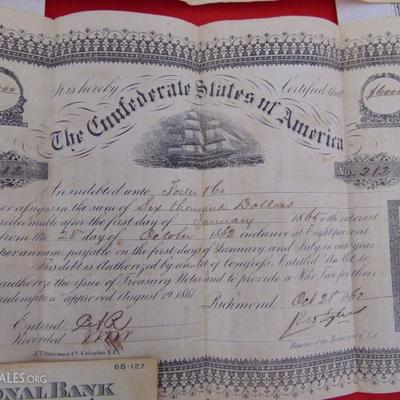 $6000
It is hereby Certified that
The Confederate States of America
No. 212
Are indebted unto Foster & Co
or assigns in the sum of Six thousand Dollars
redeemable after the first day of January 186 with interest
from the 28 day of October 1862 inclusive at Eight per cent
per annum, payable on the first days of January and July in each year
This debt is Authorized by an Act of Congress, Entitled "An Act to
authorize the issue of Treasury Notes and to provide a War Tax for their
redemption" approved August 19 1861
Richmond Oct 28 1862
Entered
Recorded
Register of the Treasury C.S.
J.T. Paterson & Co. Columbia S.C.
68-127
ONAL BANK
ALES.ORG